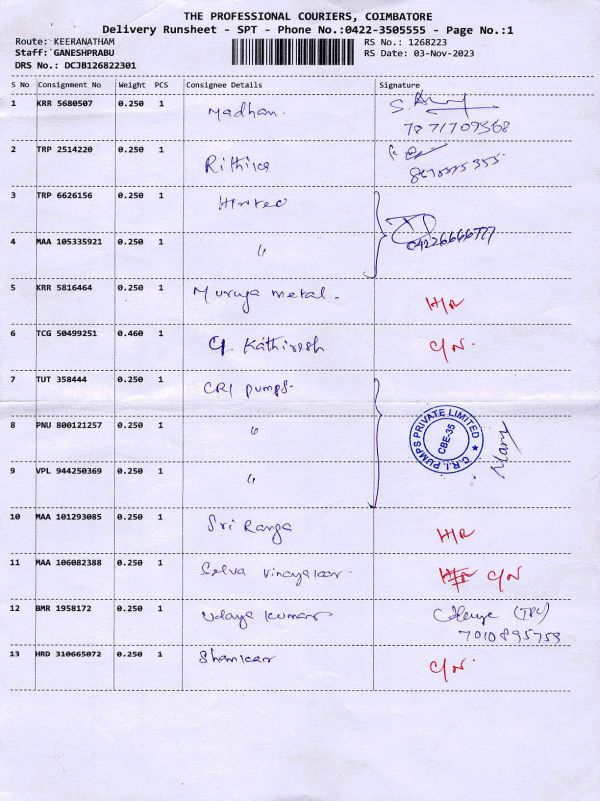 THE PROFESSIONAL COURIERS, COIMBATORE
Delivery Runsheet - SPT - Phone No.:0422-3505555 - Page No.:1
Route: KEERANATHAM RS No.: 1268223
Staff: GANESHPRABU RS Date: 03-Nov-2023
DRS No.: DCJB126822301
S No Consignment No Weight PCS Consignee Details Signature
1 KRR 5680507 0.250 1 Madhan.
7871709368
2 TRP 2514220 0.250 1 Rithika
3 TRP 6626156 0.250 1
04226666777
4 MAA 105335921 0.250 1 "
5 KRR 5816464 0.250 1 Muruga metal. H/R
6 TCG 50499251 0.460 1 G. Kathiresh C/N.
7 TUT 358444 0.250 1 CRI pumps.
8 PNU 800121257 0.250 1 "
C.R.I. PUMPS PRIVATE LIMITED ★
CBE-35
Mani
9 VPL 944250369 0.250 1 "
10 MAA 101293085 0.250 1 Sri Ranga H/R
11 MAA 106082388 0.250 1 Selva Vinayakar. H/R C/N
12 BMR 1958172 0.250 1 Udaya kumar
7010895753
13 HRD 310665072 0.250 1 Shankar C/N.